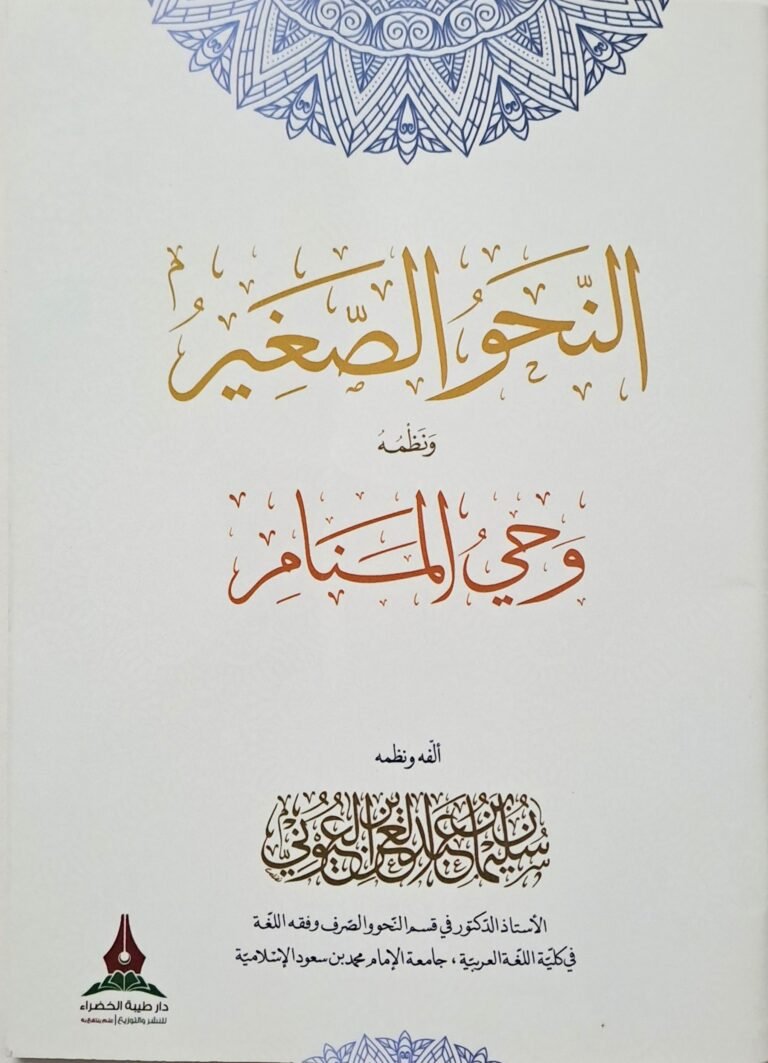 النَّحوُ الصَّغيرُ
وَنَظْمُهُ
وَحيُ المَنَامِ
ألّفه ونظمه
سُليمان بن عبد العزيز العيوني
الأستاذ الدّكتور في قسم النّحو والصّرف وفقه اللغة
في كليّة اللغة العربيّة ، جامعة الإمام محمد بن سعود الإسلاميّة
دار طيبة الخضراء
للنشر والتوزيع | علم ينتفع به